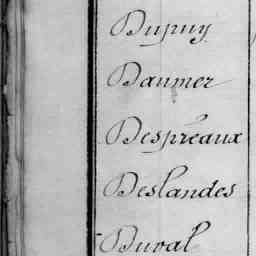 Dupuy
Daumer
Despréaux
Deslandes
Duval